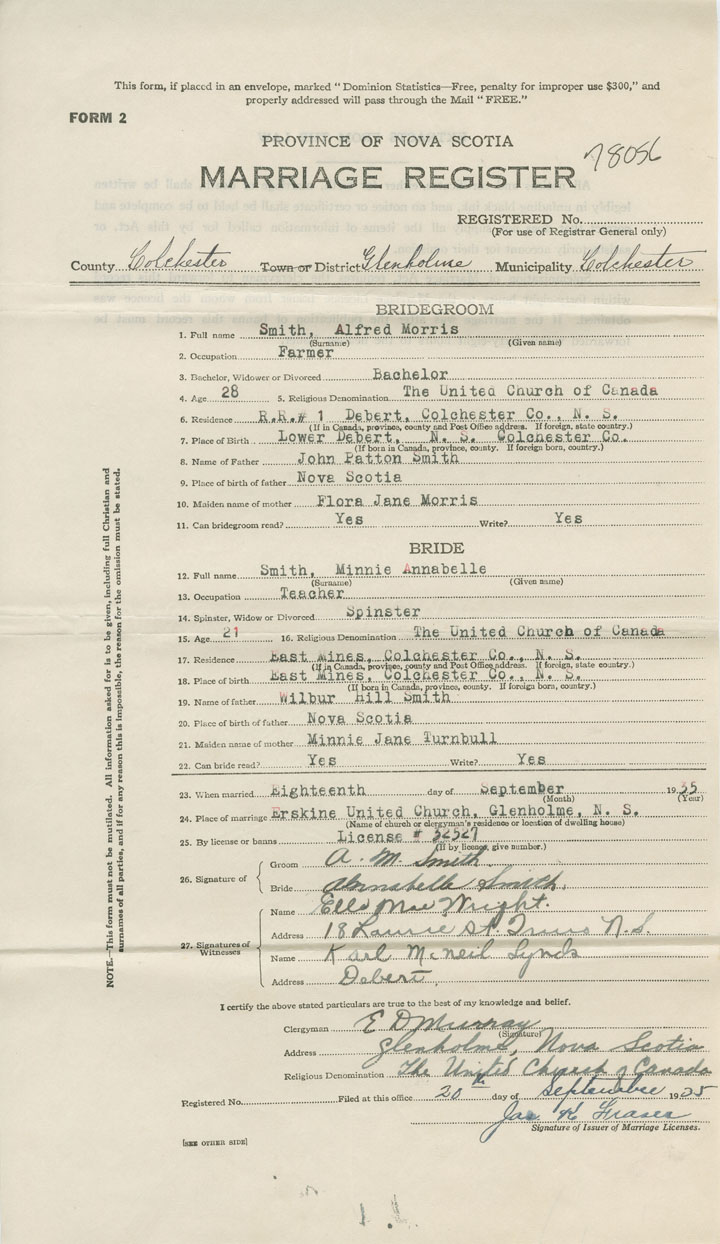 This form, if placed in an envelope, marked "Dominion Statistics—Free, penalty for improper use $300," and
properly addressed will pass through the Mail "FREE."
FORM 2
PROVINCE OF NOVA SCOTIA
78056
MARRIAGE REGISTER
REGISTERED No.
(For use of Registrar General only)
County Colchester Town or District Glenholme Municipality Colchester
BRIDEGROOM
1. Full name Smith, Alfred Morris
(Surname) (Given name)
2. Occupation Farmer
3. Bachelor, Widower or Divorced Bachelor
4. Age 28 5. Religious Denomination The United Church of Canada
6. Residence R.R.# 1 Debert, Colchester Co., N. S.
(If in Canada, province, county and Post Office address. If foreign, state country.)
7. Place of Birth Lower Debert, N. S. Colchester Co.
(If born in Canada, province, county. If foreign born, country.)
8. Name of Father John Patton Smith
9. Place of birth of father Nova Scotia
10. Maiden name of mother Flora Jane Morris
11. Can bridegroom read? Yes Write? Yes
BRIDE
12. Full name Smith, Minnie Annabelle
(Surname) (Given name)
13. Occupation Teacher
14. Spinster, Widow or Divorced Spinster
15. Age 21 16. Religious Denomination The United Church of Canada
17. Residence East Mines, Colchester Co., N. S.
(If in Canada, province, county and Post Office address. If foreign, state country.)
18. Place of birth East Mines, Colchester Co., N. S.
(If born in Canada, province, county. If foreign born, country.)
19. Name of father Wilbur Hill Smith
20. Place of birth of father Nova Scotia
21. Maiden name of mother Minnie Jane Turnbull
22. Can bride read? Yes Write? Yes
23. When married Eighteenth day of September 1935
(Month) (Year)
24. Place of marriage Erskine United Church, Glenholme, N. S.
(Name of church or clergyman's residence or location of dwelling house)
25. By license or banns License #
(If by licence, give number.)
26. Signature of
Groom A. M. Smith
Bride Annabelle Smith.
27. Signatures of Witnesses
Name Ella Mae Wright.
Address 18 Laurie St. Truro N.S.
Name Karl McNeil Lynds
Address Debert,
I certify the above stated particulars are true to the best of my knowledge and belief.
Clergyman E D Murray
(Signature)
Address Glenholme, Nova Scotia
Religious Denomination The United Church of Canada
Registered No. Filed at this office 20th day of September 1935
Jas K Fraser
Signature of Issuer of Marriage Licenses.
[SEE OTHER SIDE]
NOTE.—This form must not be mutilated. All information asked for is to be given, including full Christian and
surnames of all parties, and if for any reason this is impossible, the reason for the omission must be stated.